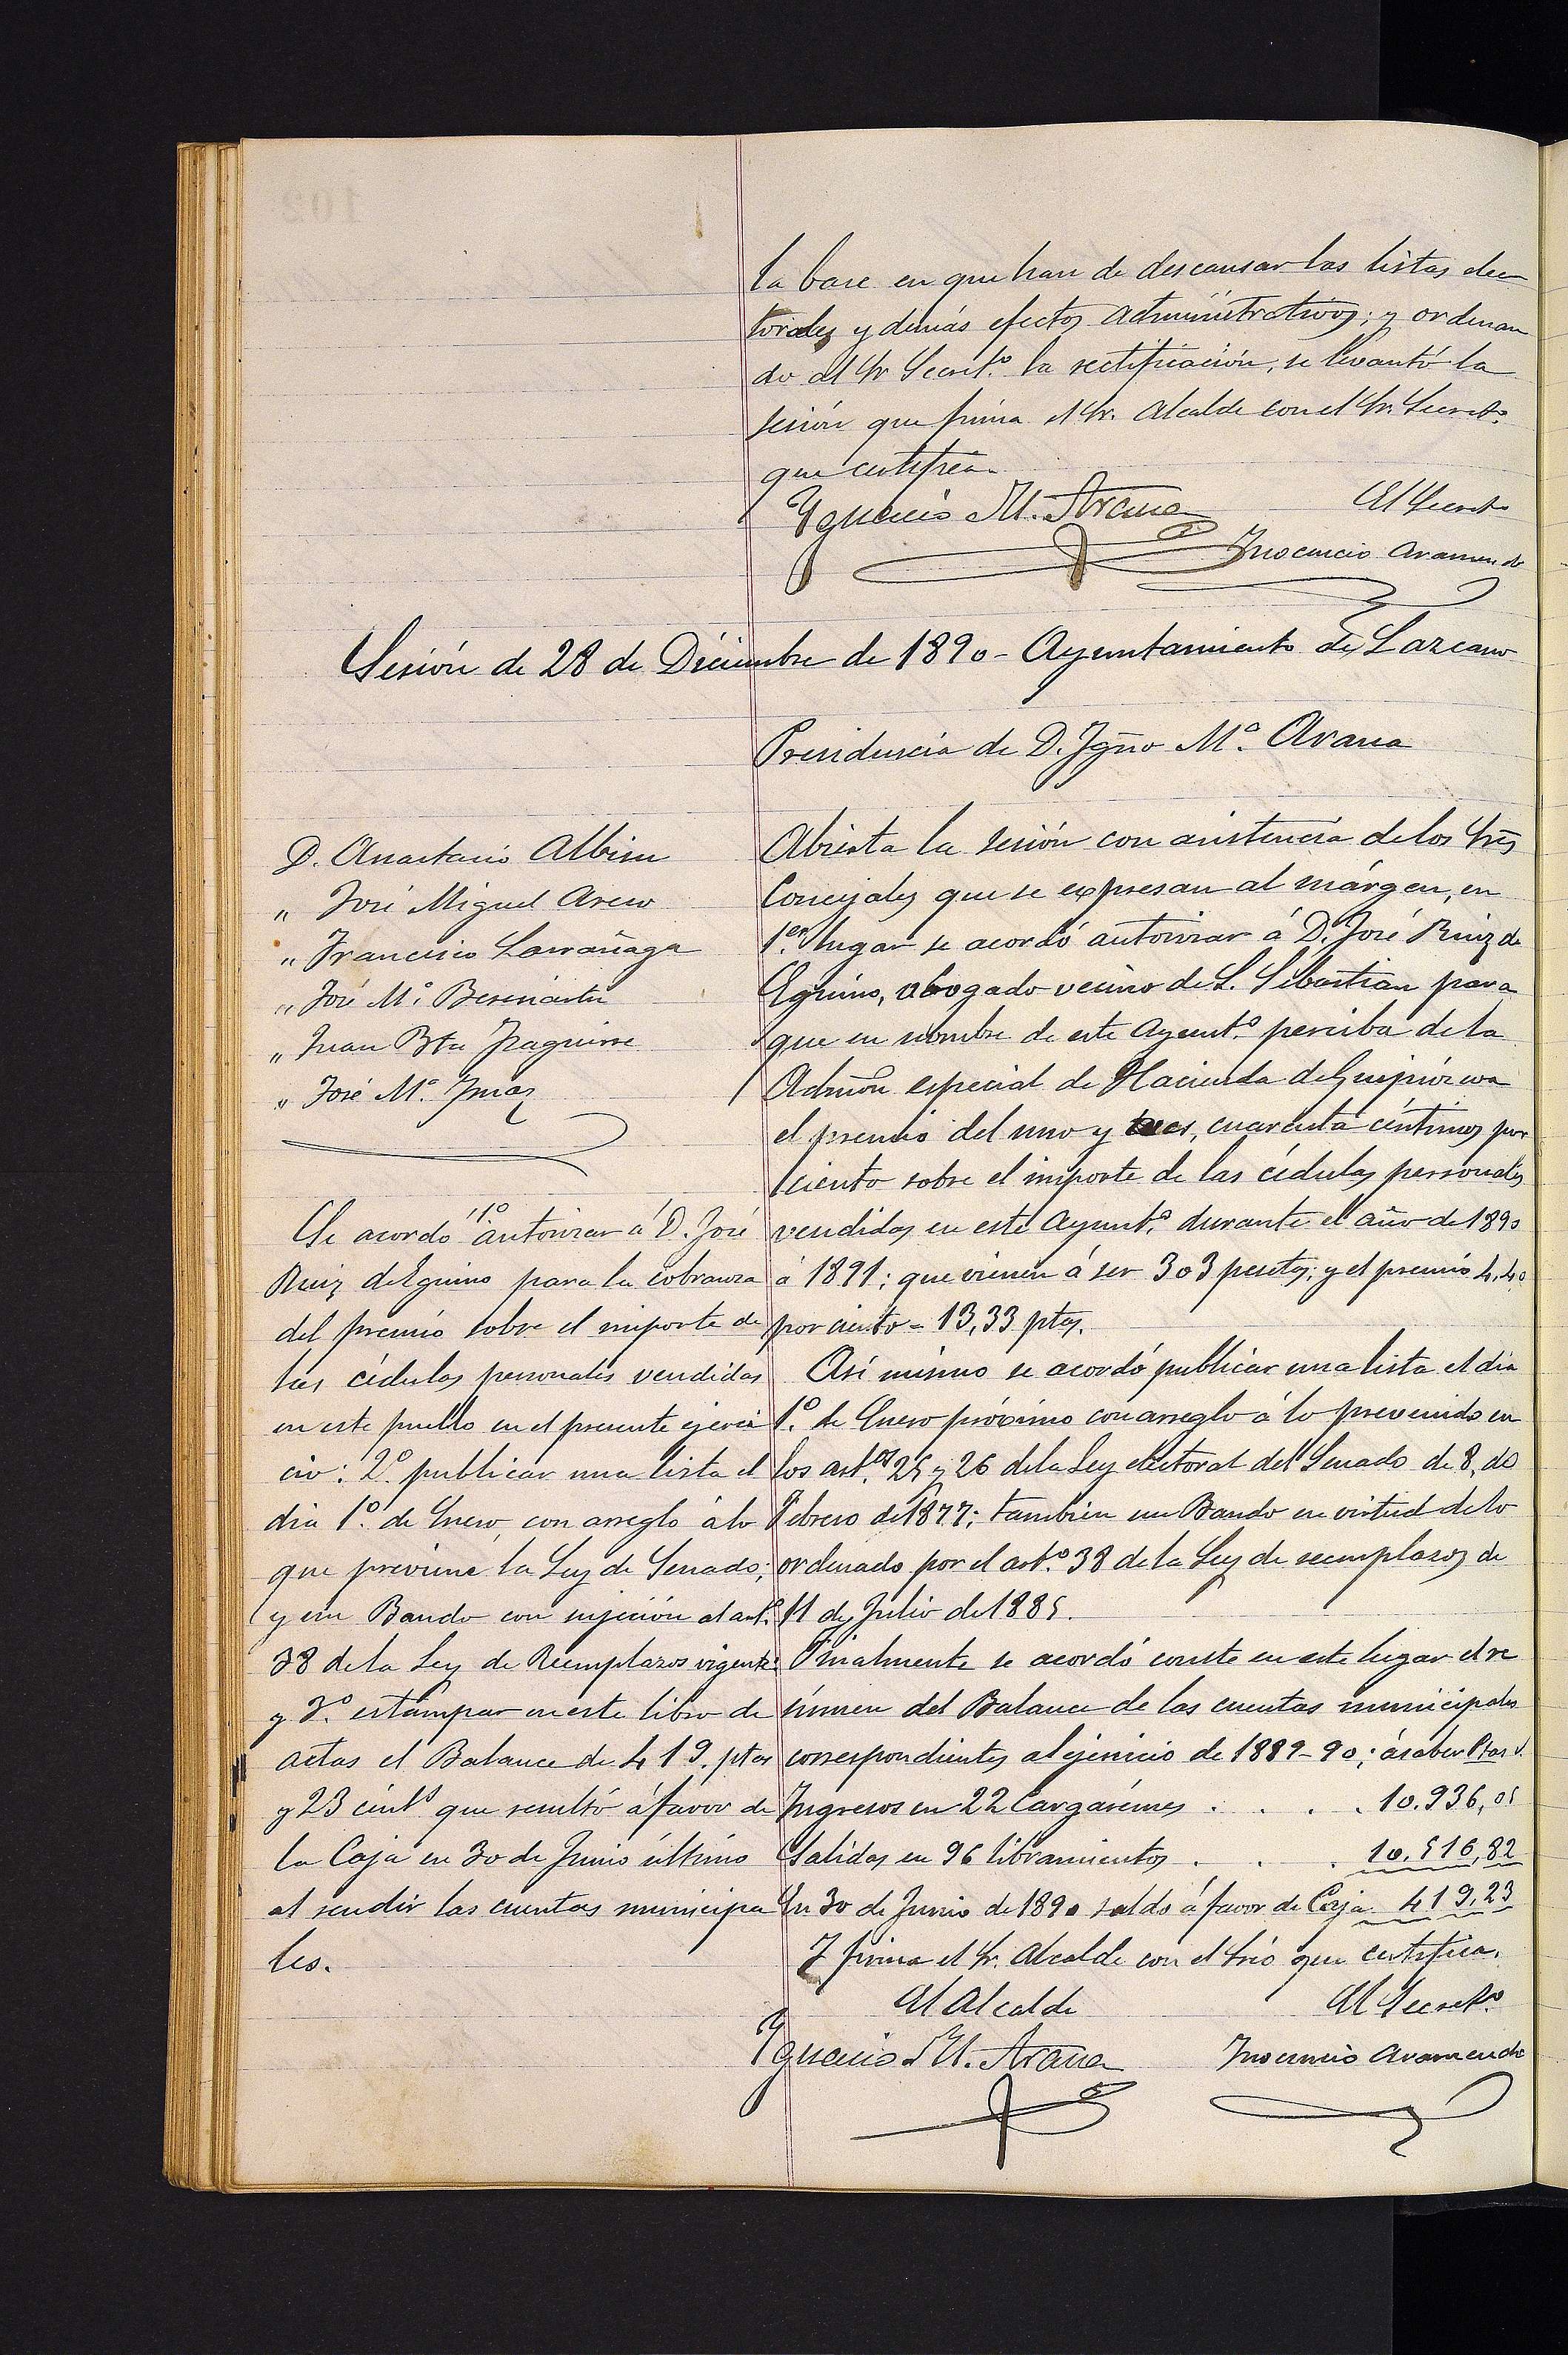 la base en que han de descansar las listas elec
torales y demás efectos administrativos; y ordenan
do al Sr Secret.º la rectificación, se levantó la
sesión que firma el Sr. Alcalde con el Sr. Secret.º
que certifica.
Ygnacio M. Arana
El Secret.º
Inocencio Aramendi
Sesión de 28 de Diciembre de 1890 - Ayuntamiento de Lazcano
Presidencia de D. Ygño Mª. Arana
D. Anastacio Albisu
" José Miguel
" Francisco Larrañaga
" José Mª.
" Juan Bta Izaguirre
" José Mª.
Se acordó 1º autorizar á D. José
Ruiz de Eguino para la cobranza
del premio sobre el importe de
las cédulas personales vendidas
en este pueblo en el presente ejerci
cio: 2º. publicar una lista el
dia 1º. de Enero, con arreglo á lo
que previene la Ley de Senado;
y un Bando con sujeción al artº.
38 de la Ley de Reemplazos vigente:
y 3º. estampar en este libro de
actas el Balance de 419. ptas
y 23 cénts que resultó á favor de
la Caja en 30 de Junio último
al rendir las cuentas municipa
les.
Abierta la sesión con asistencia de los Srẽs
Concejales que se expresan al márgen, en
1.er lugar se acordó autorizar á D. José Ruiz de
Eguino, abogado vecino de S. Sebastian para
que en nombre de este Ayuntº. perciba de la
Admõn especial de Hacienda de Guipúzcoa
el premio del uno y tres, cuarenta céntimos por
ciento sobre el importe de las cédulas personales
vendidas en este Ayuntº. durante el año de 1890
á 1891; que vienen á ser 303 pesetas; y el premio 4,40
por ciento = 13,33 ptas.
Así mismo se acordó publicar una lista el dia
1º. de Enero próximo con arreglo á lo prevenido en
los art.os 25 y 26 de la Ley electoral del Senado de 8, de
Febrero de 1877; tambien un Bando en virtud de lo
ordenado por el artº. 38 de la Ley de reemplazos de
11 de Julio de 1885.
Finalmente se acordó conste en este lugar el re
súmen del Balance de las cuentas municipales
correspondientes al ejercicio de 1889-90; á saber Ptas
Ingresos en 22 Cargarémes . . . . 10.936,05
Salidas en 96 libramientos . . . 10.516,82
En 30 de Junio de 1890 saldo á favor de Caja 419,23
Y firma el Sr. Alcalde con el Srio que certifica.
El Alcalde
El Secretº
Ygnacio M. Arana
Inocencio Aramendi